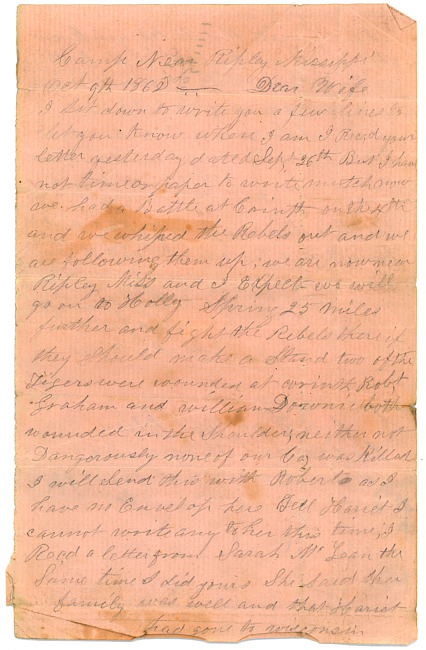 Camp Near Ripley Mississippi
Oct 9th 1862 Dear Wife
I Set down to write you a few lines to
let you know where I am I Recd your
letter yesterday dated Sept 26th But I have
not time or paper to write mutch now
we had a Battle at Corinth on the 4th
and we whiped the Rebels out and we
are following them up; we are now near
Ripley Miss and I Expect we will
go on to Holly Spring 25 miles
further and fight the Rebels there if
they should make a Stand two of the
Tigers were wounded at corinth Robt
Graham and william Downie both
wounded in the Shoulder, neither not
Dangerously none of our Co, was Killed
I will Send this with Roberts as I
have no Envelop here Tell Hariet I
cannot write any to her this time, I
Recd a letter from Sarah Mc Lean the
Same time I did yours She Said their
family was well and that Hariet
had gone to wisconsin